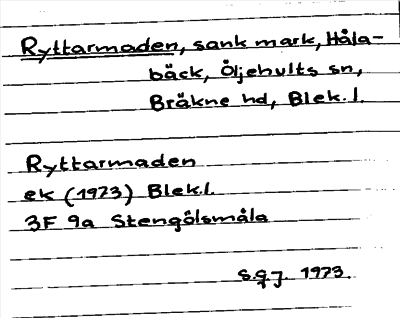 Ryttarmaden, sank mark, Håla-
bäck, Öljehults sn,
Bräkne hd, Blek.l.
Ryttarmaden
ek (1973) Blek.l.
3F 9a Stengölsmåla
S.G.J. 1973.